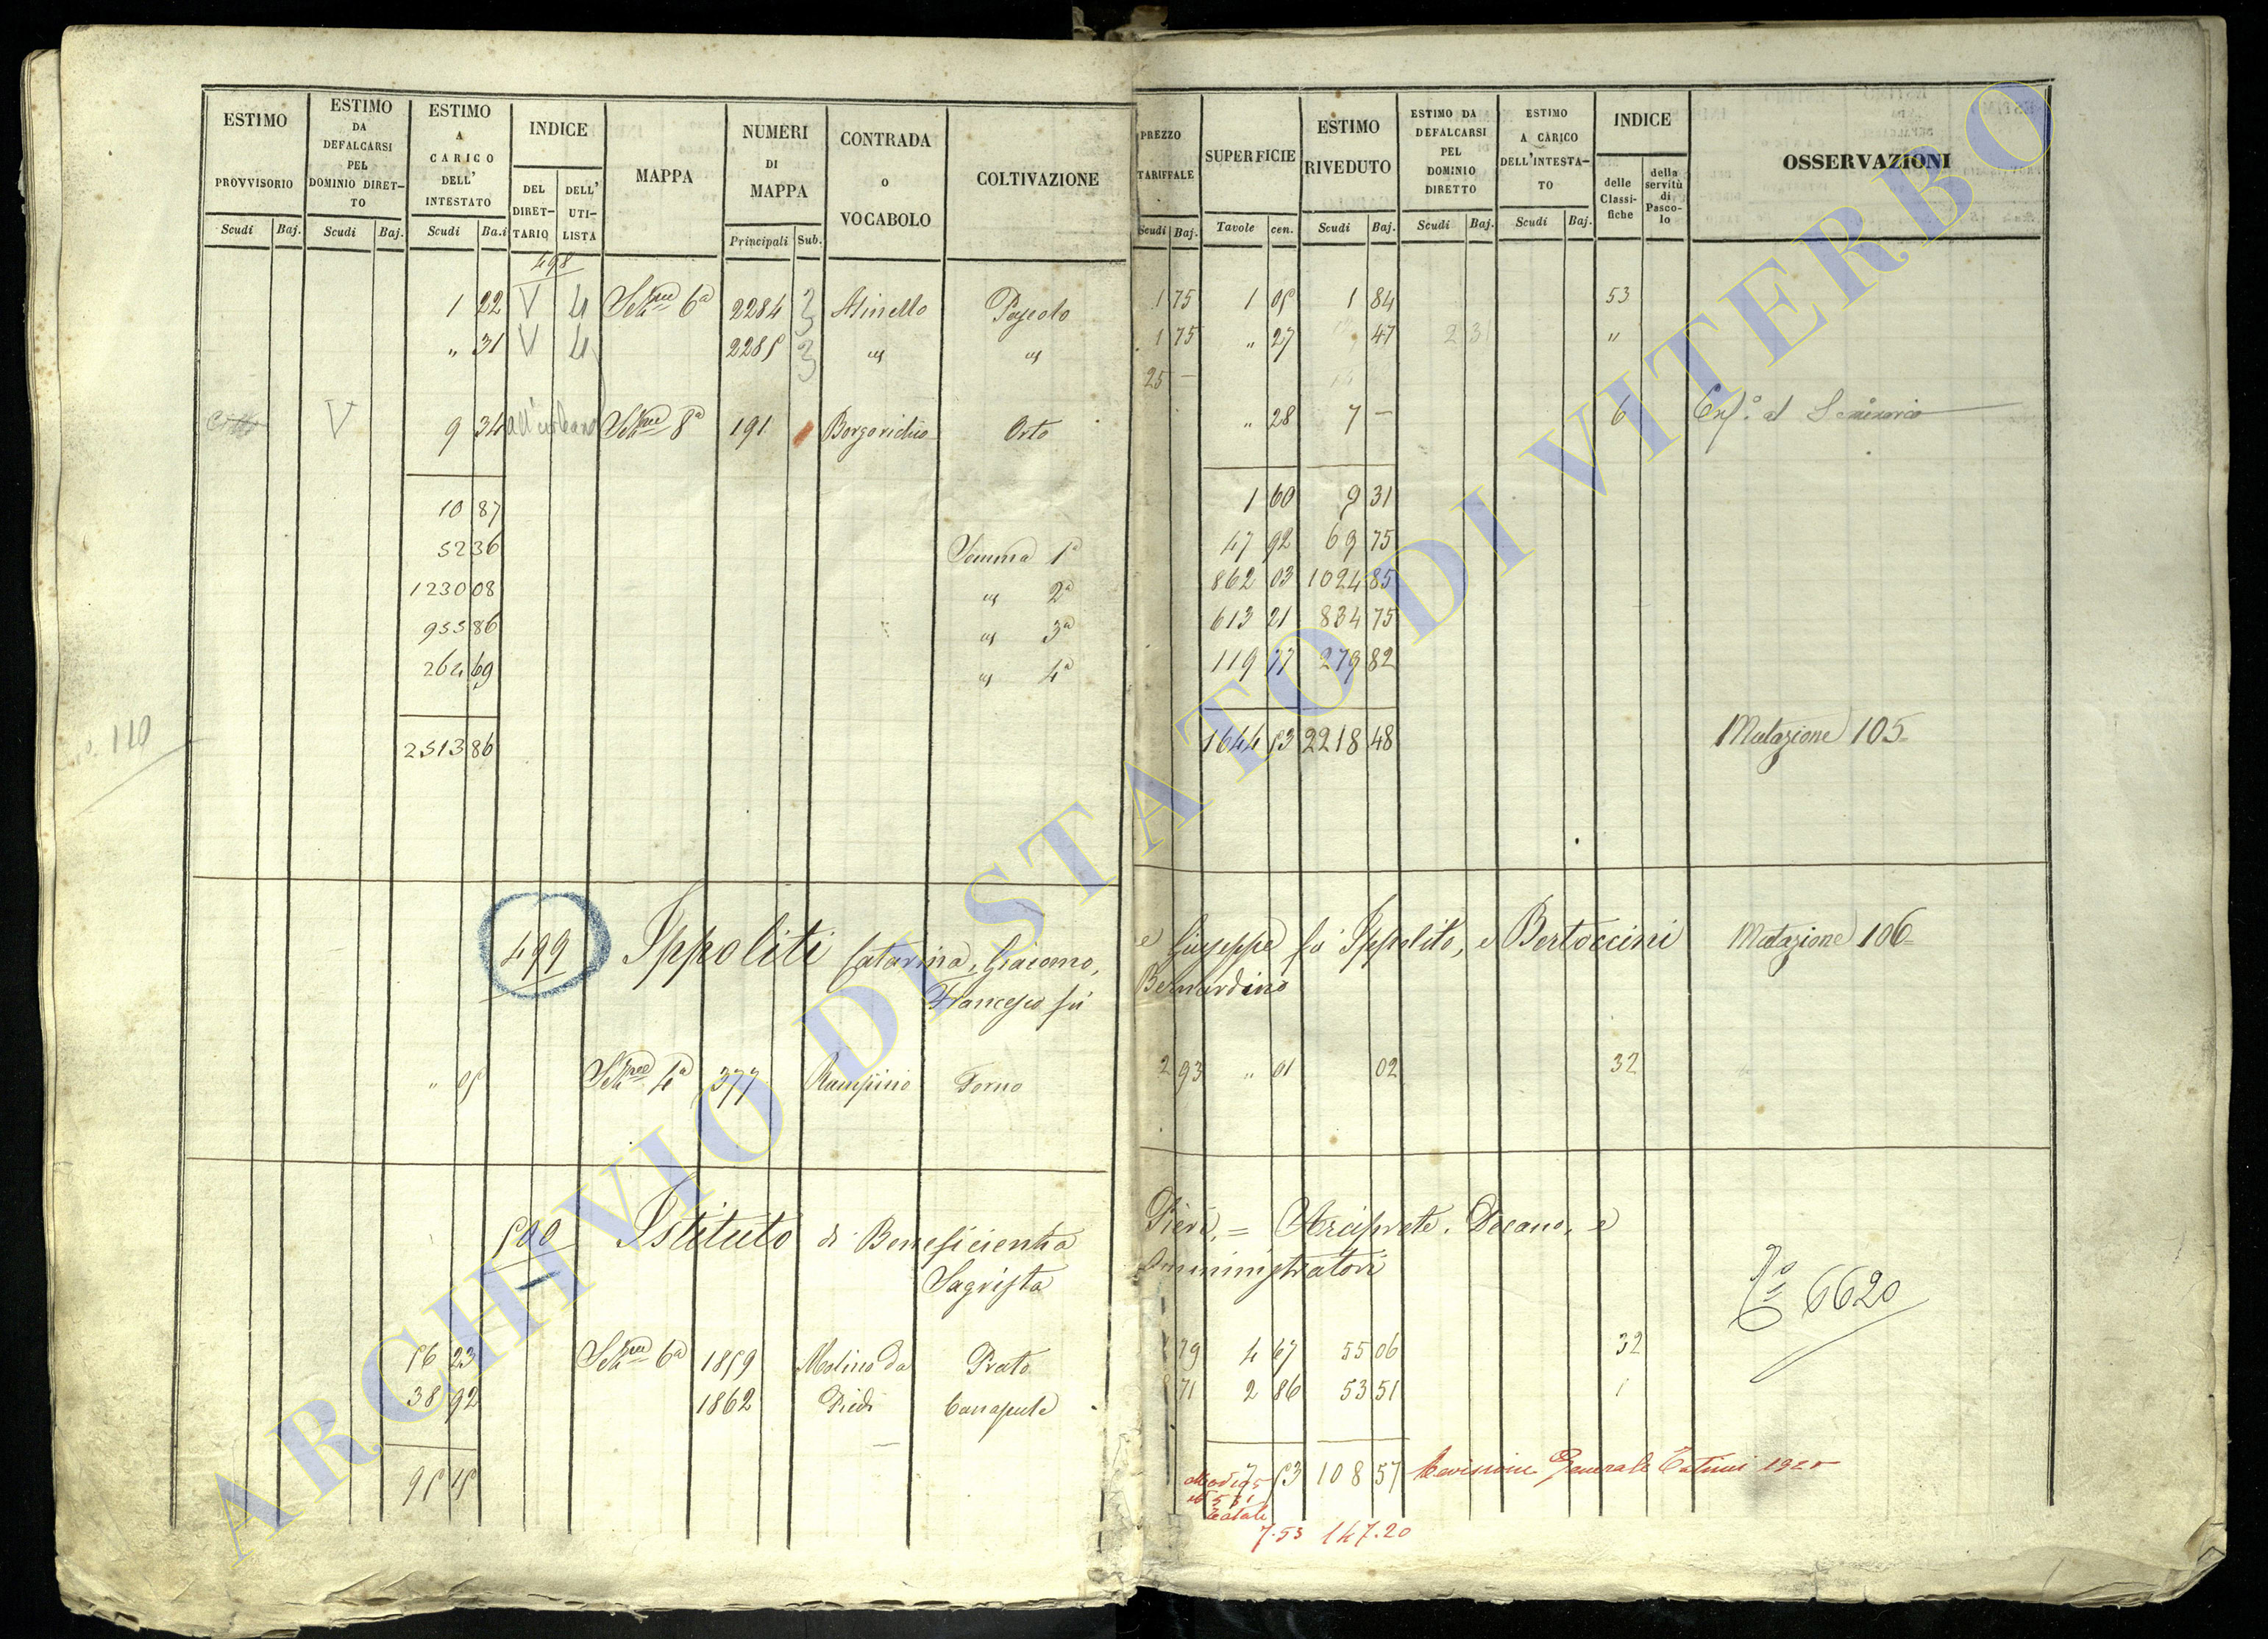 ESTIMO PROVVISORIO | ESTIMO DA DEFALCARSI PEL DOMINIO DIRETTO | ESTIMO A CARICO DELL' INTESTATO | INDICE | MAPPA | NUMERI DI MAPPA | CONTRADA o VOCABOLO | COLTIVAZIONE | PREZZO TARIFFALE | SUPERFICIE | ESTIMO RIVEDUTO | ESTIMO DA DEFALCARSI PEL DOMINIO DIRETTO | ESTIMO A CARICO DELL'INTESTATO | INDICE | OSSERVAZIONI
DEL DIRETTARIO | DELL' UTILISTA | delle Classifiche | della servitù di Pascolo
Scudi Baj. | Scudi Baj. | Scudi Ba.i | Principali Sub. | Scudi Baj. | Tavole cen. | Scudi Baj. | Scudi Baj. | Scudi Baj.
498
1 22 V 6ª 2284 3 1 75 1 05 1 84 53
" 31 V 2285 3 " " 1 75 " 27 47 2 31 "
25 —
V 9 34 8ª 191 Borgovichio Orto " 28 7 — 6 Enf.º al Seminario
10 87 1 60 9 31
52 36 Somma 1ª 47 92 69 75
1230 08 " 2ª 862 03 1024 85
955 86 " 3ª 613 21 834 75
264 69 " 4ª 119 77 279 82
110
2513 86 1644 53 2218 48 Mutazione 105
499 Ippoliti Catarina, Giacomo, e Giuseppe fù Ippolito, e Bertoccini Mutazione 106
Francesco fù Bernardino
" 05 4ª 377 Rampino Forno 2 93 " 01 02 32
500 Istituto di Beneficienza Pieri, = Arciprete. Decano, e
Sagrista Amministratori
Nº 6620
56 23 6ª 1859 Molino da Prato 79 4 67 55 06 32
38 92 1862 Piedi Canapule 71 2 86 53 51 1
95 15 7 53 108 57 Revisione Generale Estimi 1920
7.53 147.20
ARCHIVIO DI STATO DI VITERBO